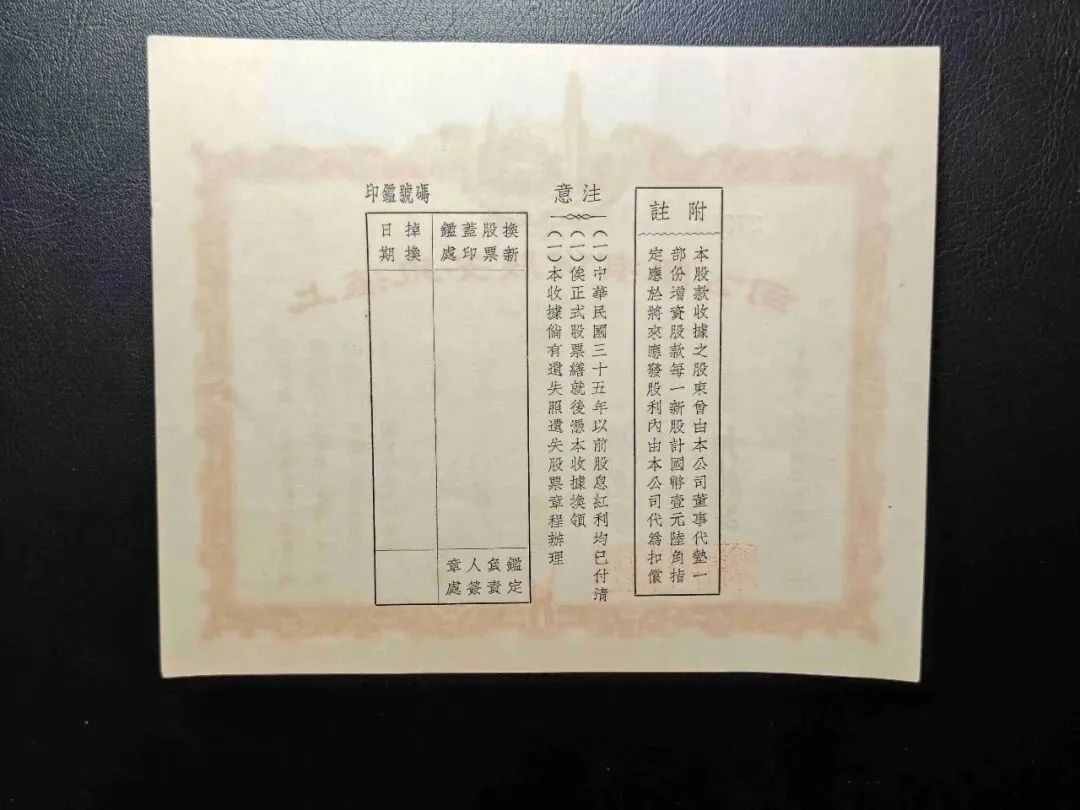 附註
本股款收據之股東曾由本公司董事代墊一
部份增資股款每一新股計國幣壹元陸角指
定應於將來應發股利內由本公司代爲扣償
注意
(一)中華民國三十五年以前股息紅利均已付清
(一)俟正式股票繕就後憑本收據換領
(一)本收據倘有遺失照遺失股票章程辦理
印鑑號碼
換新股票蓋印鑑處
掉換日期
鑑定負責人簽章處